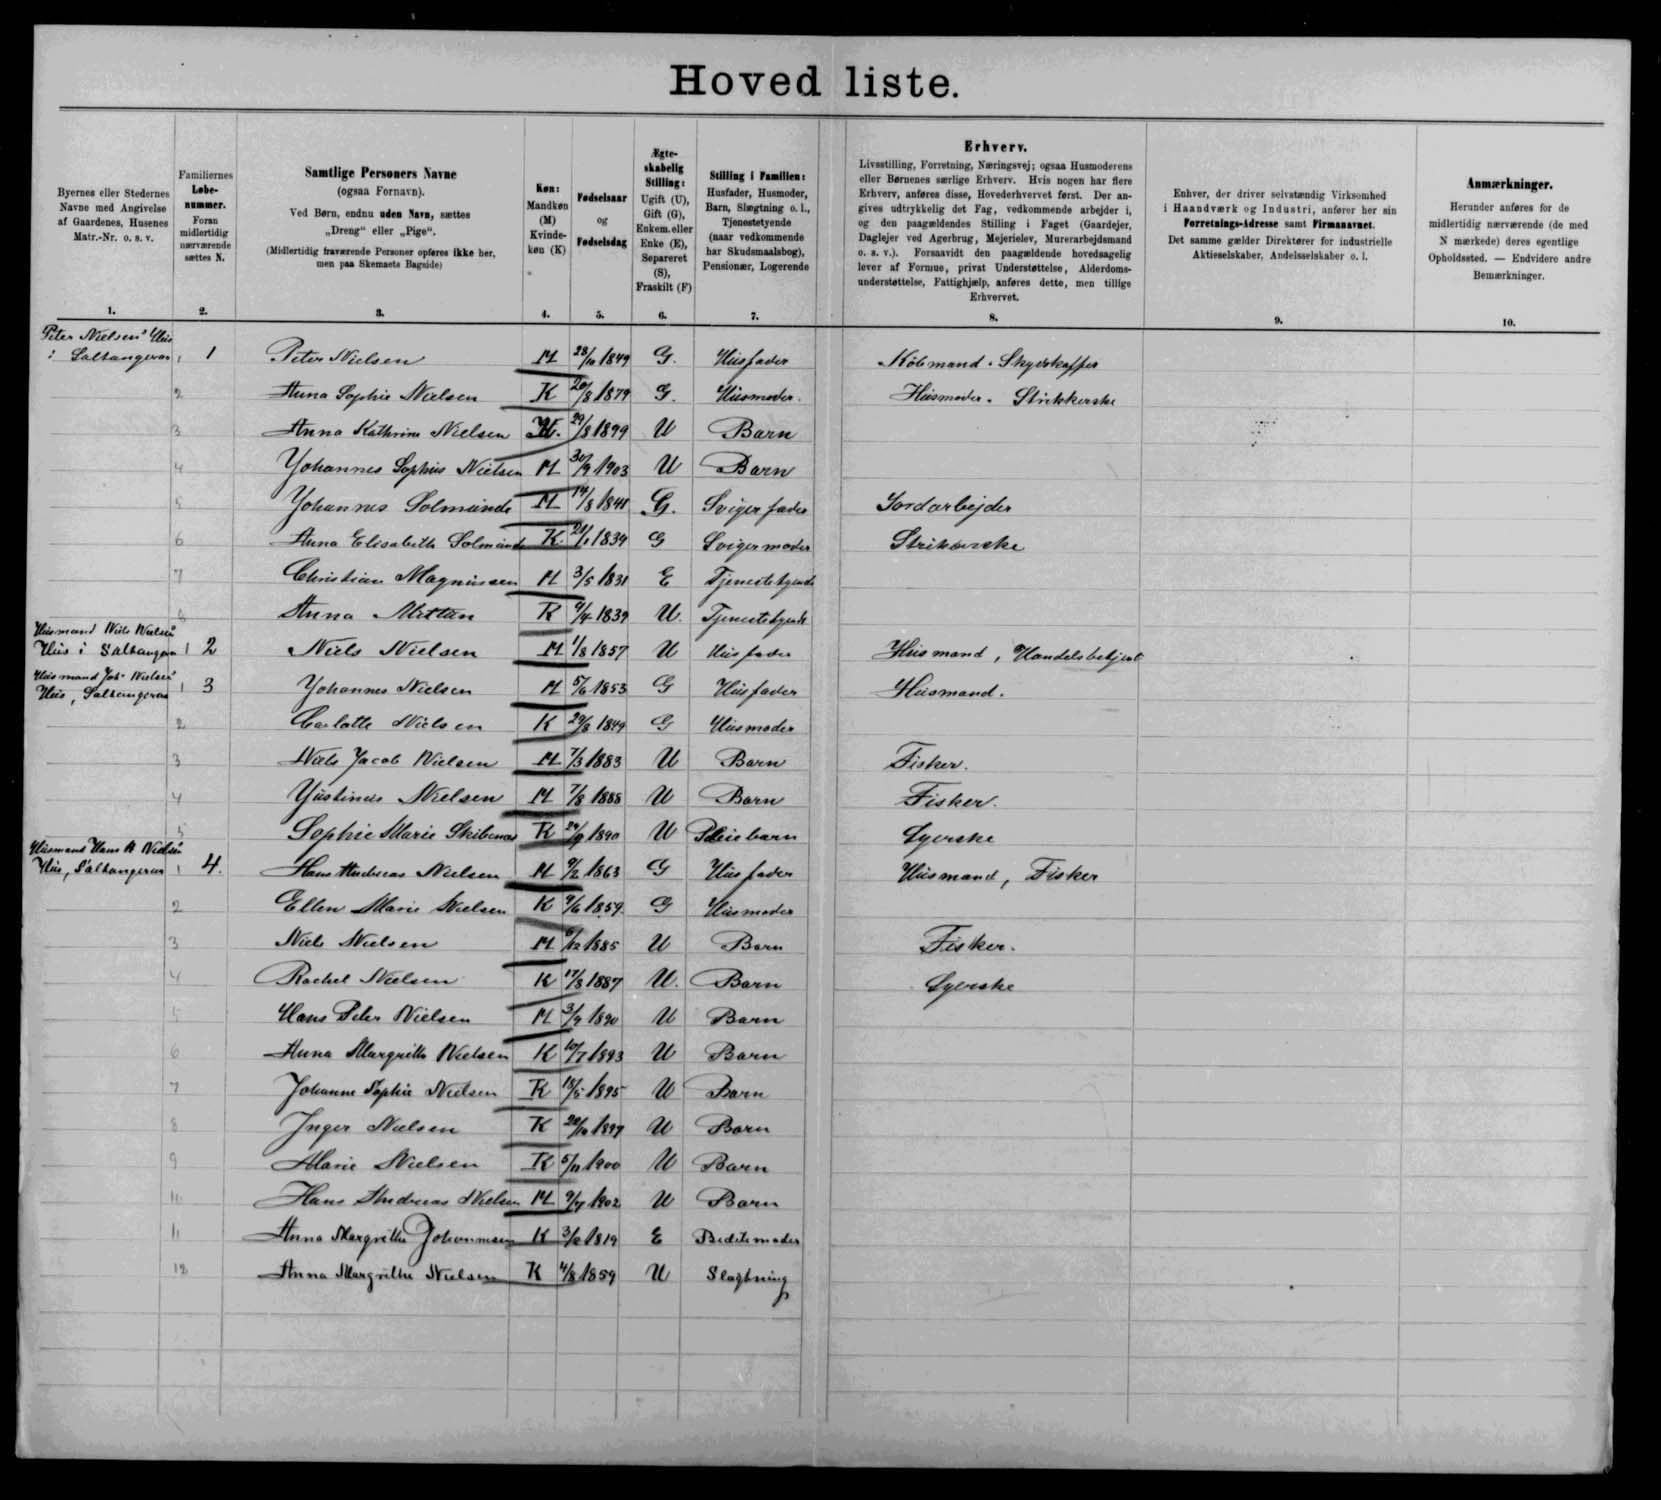 Hoved liste.
Byernes eller Stedernes
Navne med Angivelse
af Gaardenes, Husenes
Matr.-Nr. o. s. v.
1.
Familiernes
Løbe-
nummer.
Foran
midlertidig
nærværende
sættes N.
2.
Samtlige Personers Navne
(ogsaa Fornavn).
Ved Børn, endnu uden Navn, sættes
„Dreng“ eller „Pige“.
(Midlertidig fraværende Personer opføres ikke her,
men paa Skemaets Bagside)
3.
Køn:
Mandkøn
(M)
Kvinde-
køn (K)
4.
Fødselsaar
og
Fødselsdag
5.
Ægte-
skabelig
Stilling:
Ugift (U),
Gift (G),
Enkem. eller
Enke (E),
Separeret
(S),
Fraskilt (F)
6.
Stilling i Familien:
Husfader, Husmoder,
Barn, Slægtning o. l.,
Tjenestetyende
(naar vedkommende
har Skudsmaalsbog),
Pensionær, Logerende
7.
Erhverv.
Livsstilling, Forretning, Næringsvej; ogsaa Husmoderens
eller Børnenes særlige Erhverv. Hvis nogen har flere
Erhverv, anføres disse, Hovederhvervet først. Der an-
gives udtrykkelig det Fag, vedkommende arbejder i,
og den paagældendes Stilling i Faget (Gaardejer,
Daglejer ved Agerbrug, Mejerielev, Murerarbejdsmand
o. s. v.). Forsaavidt den paagældende hovedsagelig
lever af Formue, privat Understøttelse, Alderdoms-
understøttelse, Fattighjælp, anføres dette, men tillige
Erhvervet.
8.
Enhver, der driver selvstændig Virksomhed
i Haandværk og Industri, anfører her sin
Forretnings-Adresse samt Firmanavnet.
Det samme gælder Direktører for industrielle
Aktieselskaber, Andelsselskaber o. l.
9.
Anmærkninger.
Herunder anføres for de
midlertidig nærværende (de med
N mærkede) deres egentlige
Opholdssted. — Endvidere andre
Bemærkninger.
10.
Peter Nielsens Hus
i Saltangeran 1 1 Peter Nielsen M 28/10 1849 G. Husfader Købmand. Skydskaffer
2 Anna Sophie Nielsen K 20/8 1879 G. Husmoder. Husmoder. Strikkerske
3 Anna Kathrine Nielsen 29/8 1899 U Barn
4 Johannes Sophus Nielsen M 30/9 1903 U Barn
5 Johannes Solmunde M 14/8 1841 G. Svigerfader Jordarbejder
6 Anna Elisabeth Solmunde K. 21/1 1839 G Svigermoder
7 Christian Magnussen M 3/5 1831 E Tjenestetyende
8 Anna K 9/4 1839 U. Tjenestetyende
Husmand Niels Nielsens
Hus i Saltangeran 1 2 Niels Nielsen M 1/8 1857 U Husfader Husmand, Handelsbetjent
Husmand Joh. Nielsens
Hus, Saltangeran 1 3 Johannes Nielsen M 5/6 1853 G Husfader Husmand.
2 Carlotte Nielsen K 29/8 1849 G Husmoder
3 Niels Jacob Nielsen M 7/3 1883 U Barn Fisker.
4 Justinus Nielsen M 7/8 1888 U Barn Fisker.
5 Sophie Marie Skibenæs K 24/9 1890 U Pleiebarn Syerske
Husmand Hans A Nielsens
Hus, Saltangeran 1 4. Hans Andreas Nielsen M 9/2 1863 G Husfader Husmand, Fisker
2 Ellen Marie Nielsen K 9/6 1859 G Husmoder
3 Niels Nielsen M 6/12 1885 U Barn Fisker.
4 Rachel Nielsen K 17/8 1887 U. Barn Syerske
5 Hans Peter Nielsen M 3/9 1890 U Barn
6 Anna Margrithe Nielsen K 10/7 1893 U Barn
7 Johanne Sophie Nielsen K 18/5 1895 U Barn
8 Inger Nielsen K 22/10 1897 U Barn
9 Marie Nielsen K 5/11 1900 U Barn
Hans Andreas Nielsen M 9/7 1902 U Barn
11 Anna Margrithe Johannesen K 3/2 1819 E
12 Anna Margrithe Nielsen K 4/8 1859 U Slægtning